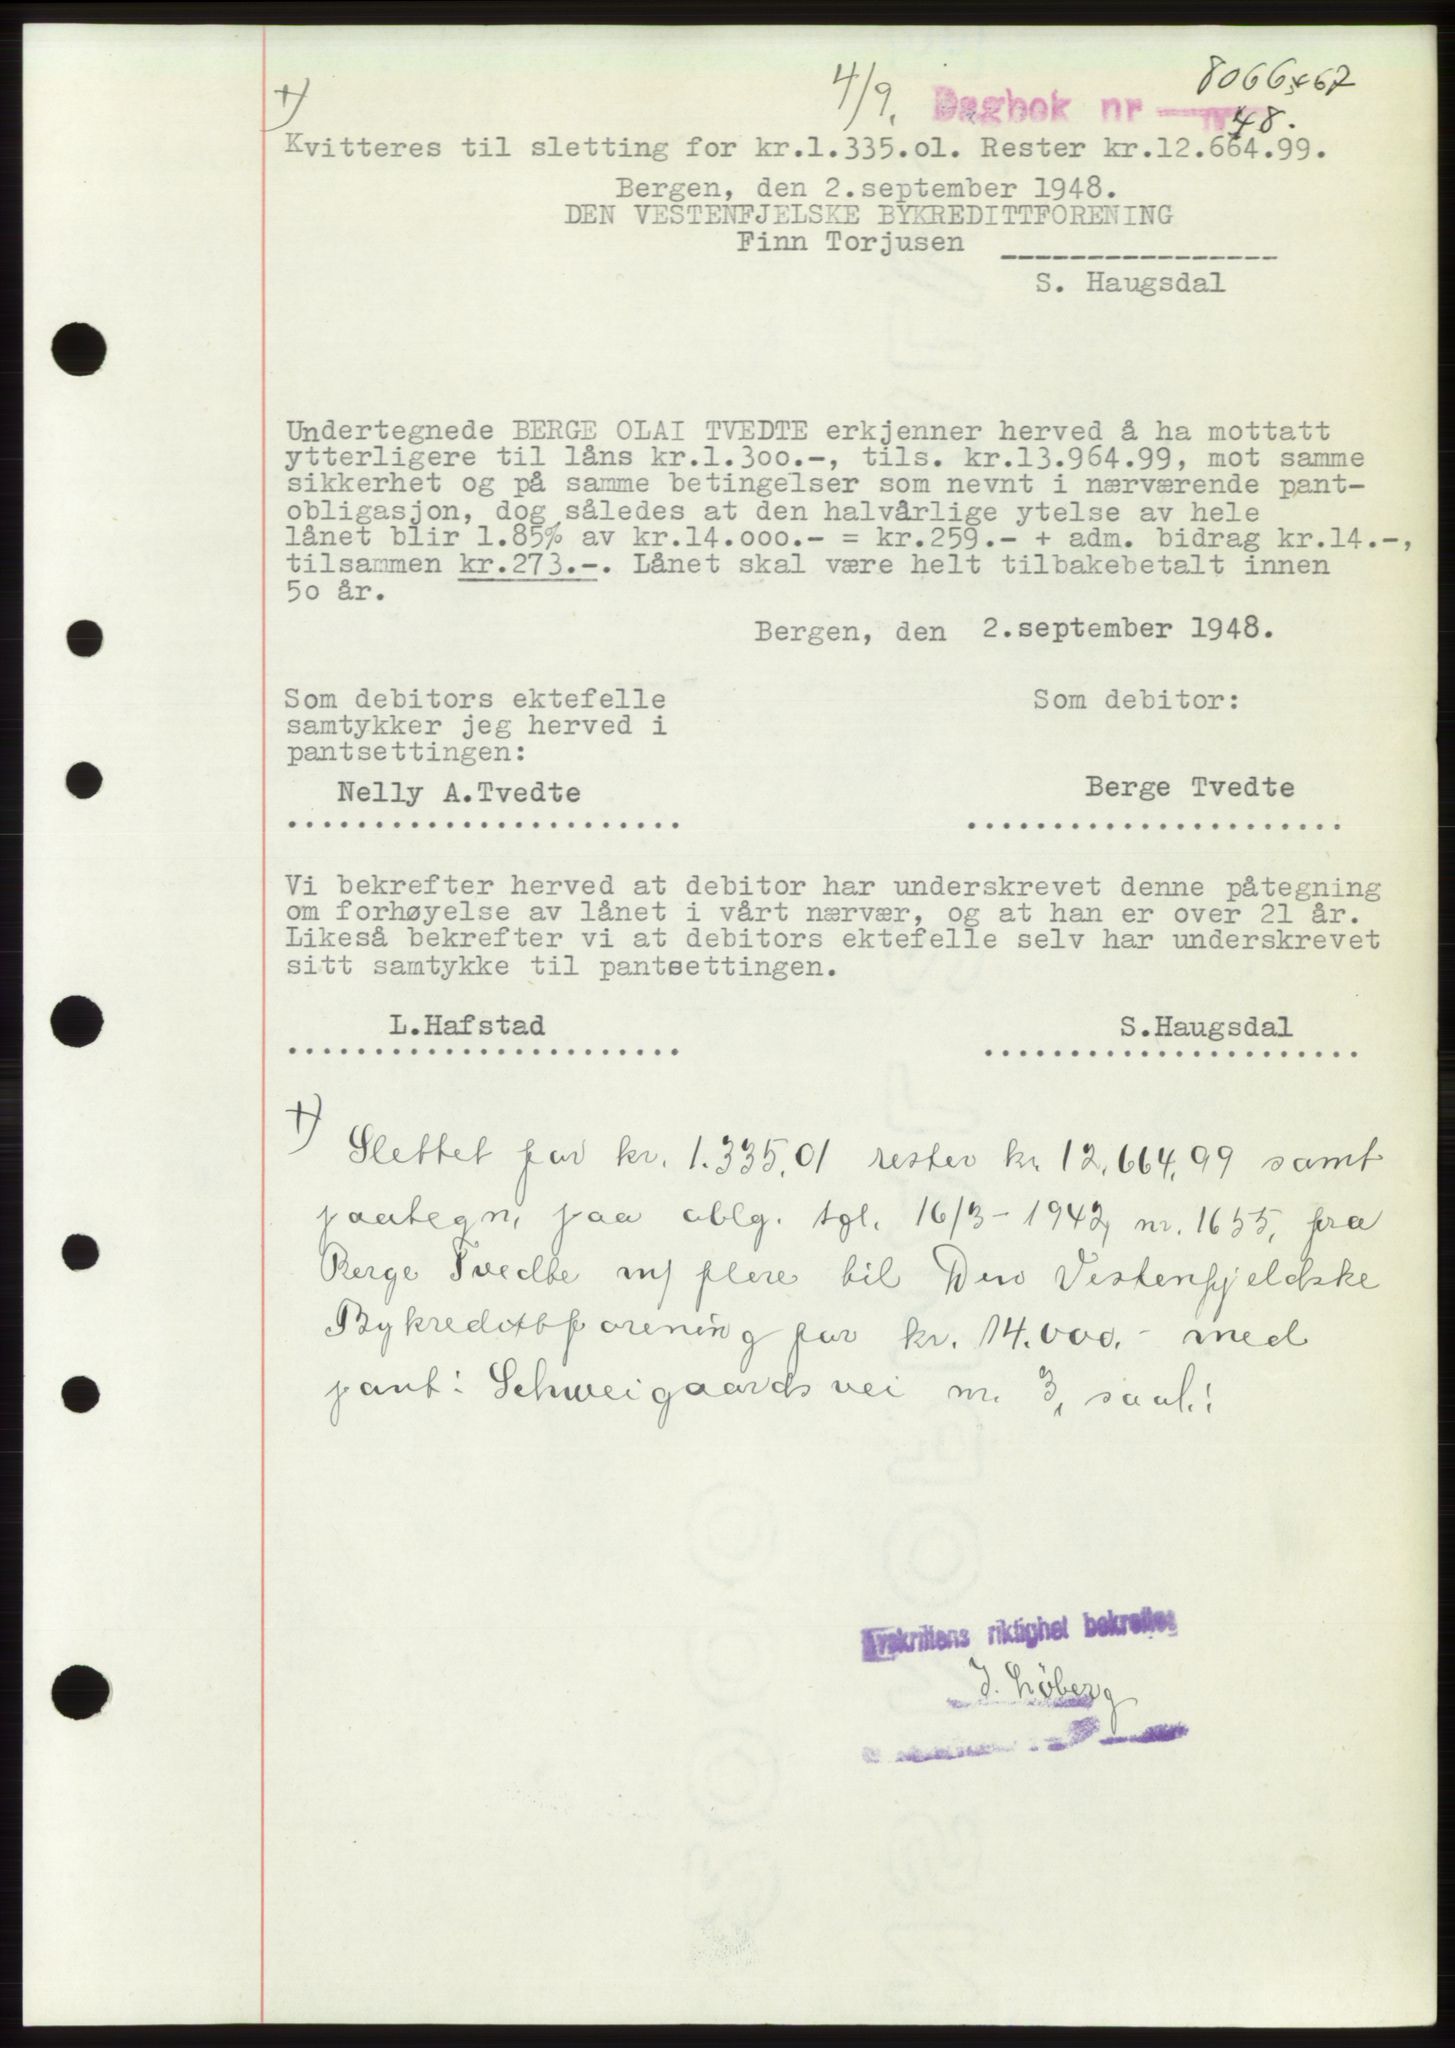 4/9. Dagbok nr 8066+67
48.
+)
Kvitteres til sletting for kr.1.335.o1. Rester kr.12.664.99.
Bergen, den 2.september 1948.
DEN VESTENFJELSKE BYKREDITTFORENING
Finn Torjusen
S. Haugsdal
Undertegnede BERGE OLAI TVEDTE erkjenner herved å ha mottatt
ytterligere til låns kr.1.3oo.-, tils. kr.13.964.99, mot samme
sikkerhet og på samme betingelser som nevnt i nærværende pant-
obligasjon, dog således at den halvårlige ytelse av hele
lånet blir 1.85% av kr.14.ooo.- = kr.259.- + adm. bidrag kr.14.-,
tilsammen kr.273.-. Lånet skal være helt tilbakebetalt innen
5o år.
Bergen, den 2.september 1948.
Som debitors ektefelle
samtykker jeg herved i
pantsettingen:
Som debitor:
Nelly A.Tvedte
Berge Tvedte
Vi bekrefter herved at debitor har underskrevet denne påtegning
om forhøyelse av lånet i vårt nærvær, og at han er over 21 år.
Likeså bekrefter vi at debitors ektefelle selv har underskrevet
sitt samtykke til pantsettingen.
L.Hafstad
S.Haugsdal
+)
Slettet for kr. 1.335,01 rester kr. 12.664,99 samt
paategn. paa oblg. tgl. 16/3-1942, nr. 1655, fra
Berge Tvedte m/ flere til Den Vestenfjeldske
Bykreditforening for kr. 14.000.- med
pant: Schweigaards vei nr. 3, saal.:
Avskriftens riktighet bekreftes
J. Löberg